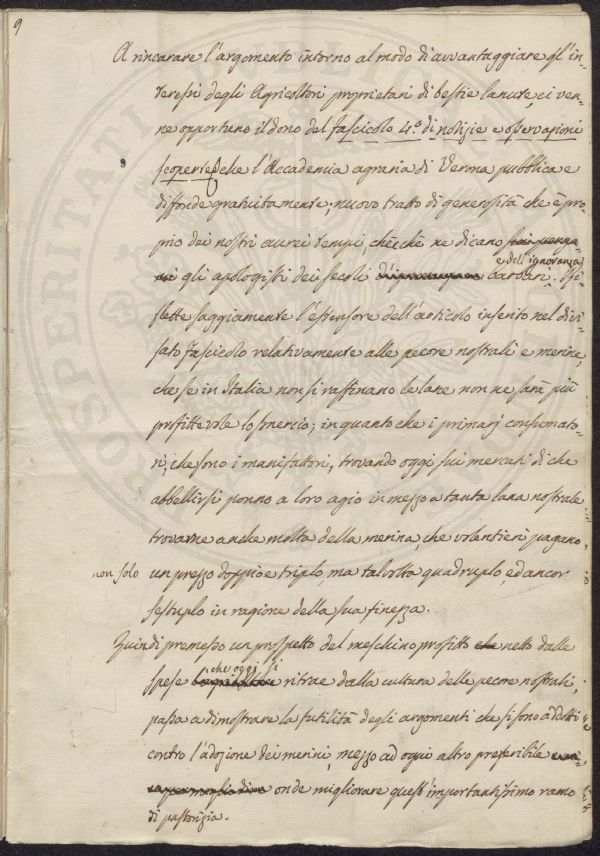 9
A rincarare l'argomento intorno al modo di avvantaggiare gl'in-
teressi degli Agricoltori proprietari di bestie lanute, ci ven-
ne opportuno il dono del fascicolo 4.º di notizie e osservazioni
scoperte che l'Accademia agraria di Verona pubblica e
diffonde gratuitamente; nuovo tratto di generosità che è pro-
prio dei nostri aurei tempi, chècchè ne dicano
e dell'ignoranza
gli apologisti dei secoli barbari. Ri-
flette saggiamente l'estensore dell'articolo inserito nel divi-
sato fascicolo relativamente alle pecore nostrali e merine,
che se in Italia non si raffinano le lane non ne sarà più
profittevole lo smercio; in quanto che i primarj consumato-
ri, che sono i manifattori, trovando oggi sui mercati di che
abbellirsi ponno a loro agio in mezzo a tanta lana nostrale
trovarne anche molta della merina, che volentieri pagano
non solo un prezzo doppio e triplo, ma talvolta quadruplo, ed ancor
sestuplo in ragione della sua finezza.
Quindi premesso un prospetto del meschino profitto che netto dalle
che oggi si
spese ritrae dalla cultura delle pecore nostrali,
passa a dimostrare la futilità degli argomenti che si sono addotti
contro l'adozione dei merini, mezzo ad ogni altro preferibile
onde migliorare quest'importantissimo ramo
di pastorizia.
PROSPERITATI PUBLICAE